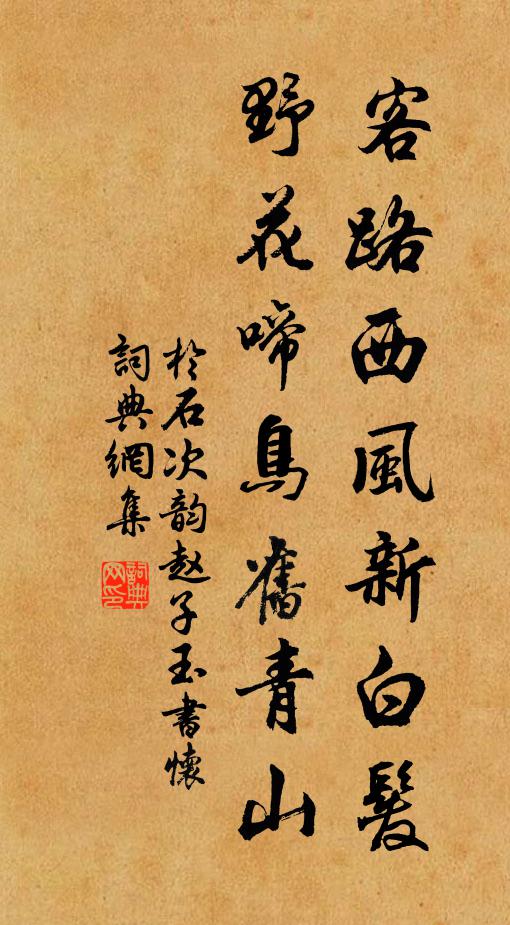 客路西風新白髮
野花啼鳥舊青山
於石次韵赵子玉書懷
詞典網集
詞典网印